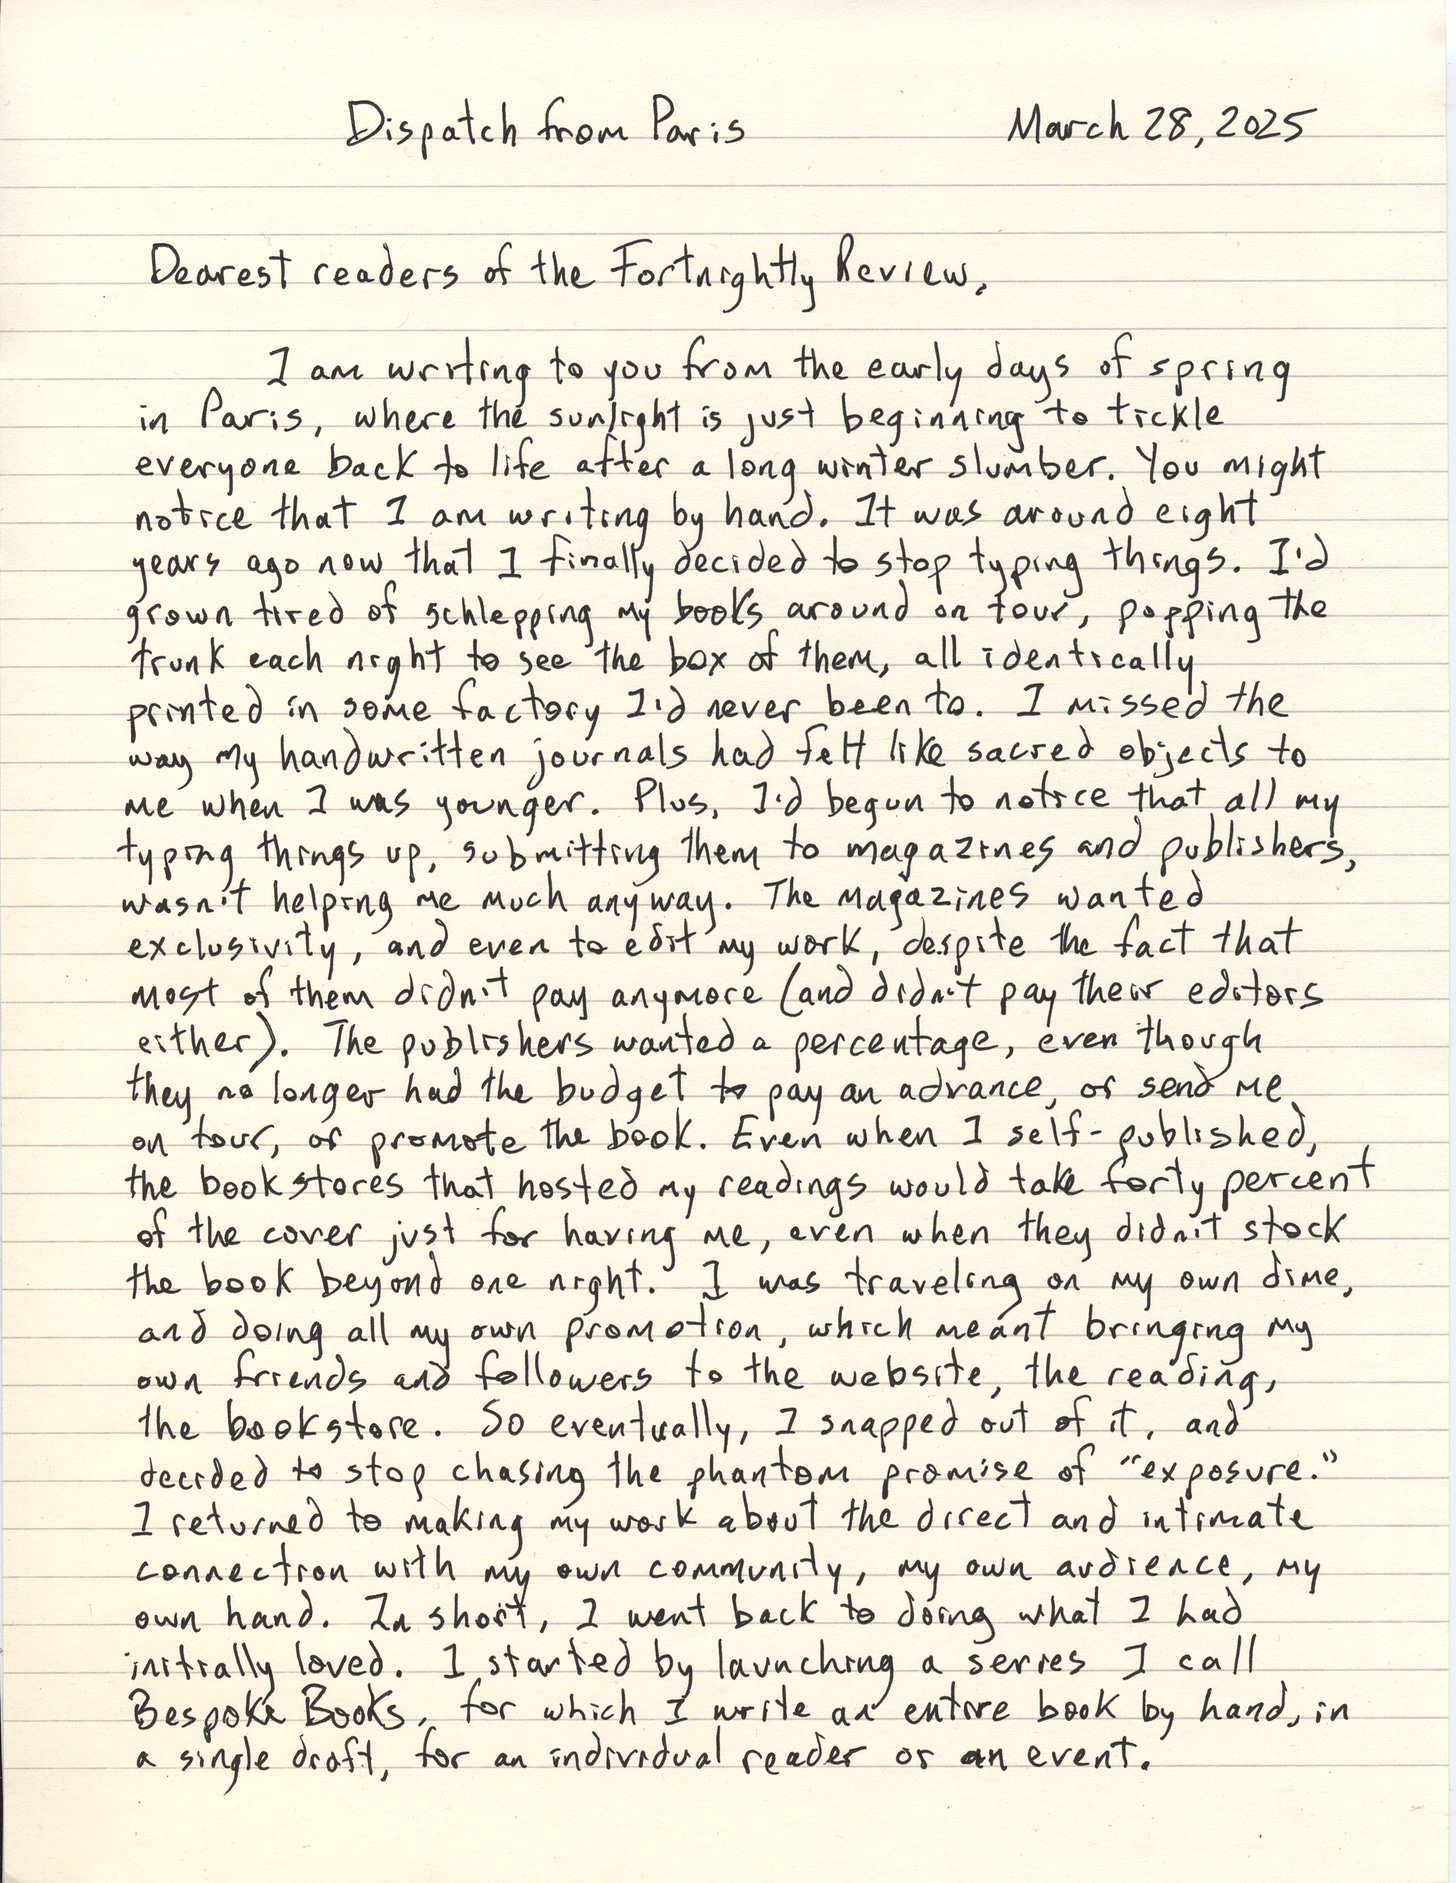 Dispatch from Paris March 28, 2025
Dearest readers of the Fortnightly Review,
I am writing to you from the early days of spring
in Paris, where the sunlight is just beginning to tickle
everyone back to life after a long winter slumber. You might
notice that I am writing by hand. It was around eight
years ago now that I finally decided to stop typing things. I'd
grown tired of schlepping my books around on tour, popping the
trunk each night to see the box of them, all identically
printed in some factory I'd never been to. I missed the
way my handwritten journals had felt like sacred objects to
me when I was younger. Plus, I'd begun to notice that all my
typing things up, submitting them to magazines and publishers,
wasn't helping me much anyway. The magazines wanted
exclusivity, and even to edit my work, despite the fact that
most of them didn't pay anymore (and didn't pay their editors
either). The publishers wanted a percentage, even though
they no longer had the budget to pay an advance, or send me
on tour, or promote the book. Even when I self-published,
the bookstores that hosted my readings would take forty percent
of the cover just for having me, even when they didn't stock
the book beyond one night. I was traveling on my own dime,
and doing all my own promotion, which meant bringing my
own friends and followers to the website, the reading,
the bookstore. So eventually, I snapped out of it, and
decided to stop chasing the phantom promise of "exposure."
I returned to making my work about the direct and intimate
connection with my own community, my own audience, my
own hand. In short, I went back to doing what I had
initially loved. I started by launching a series I call
Bespoke Books, for which I write an entire book by hand, in
a single draft, for an individual reader or an event.